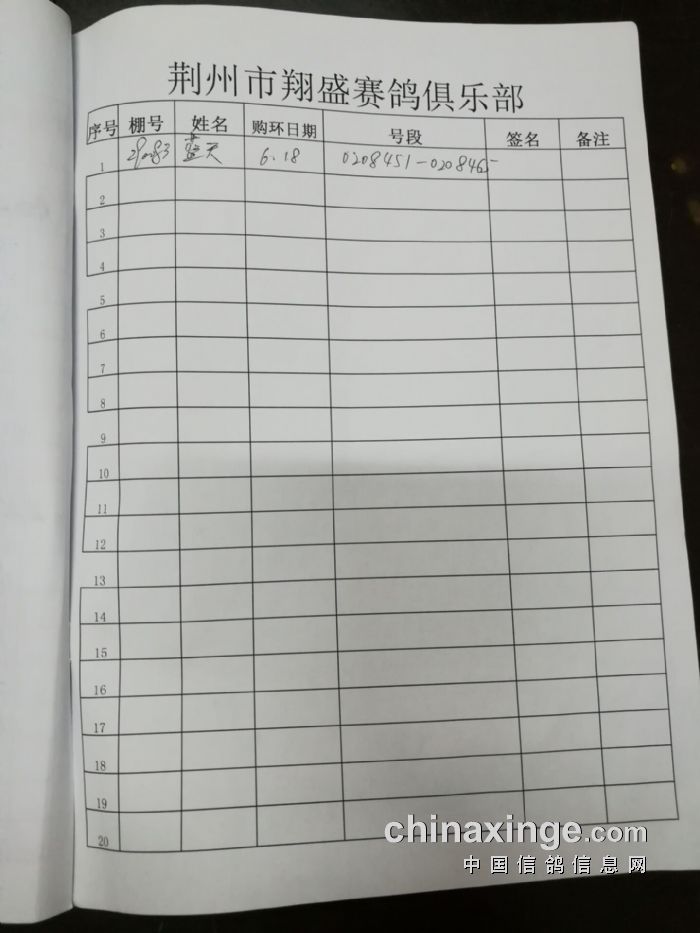 荆州市翔盛赛鸽俱乐部
序号 棚号 姓名 购环日期 号段 签名 备注
1 蓝天 6.18 0208451-0208465
2
3
4
5
6
7
8
9
10
11
12
13
14
15
16
17
18
19
20
chinaxinge.com
中国信鸽信息网